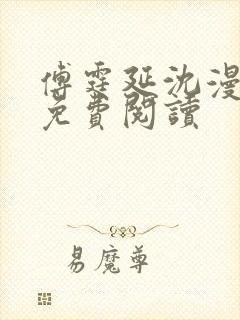 傅霆延沈漫
免費閱讀
易魔尊